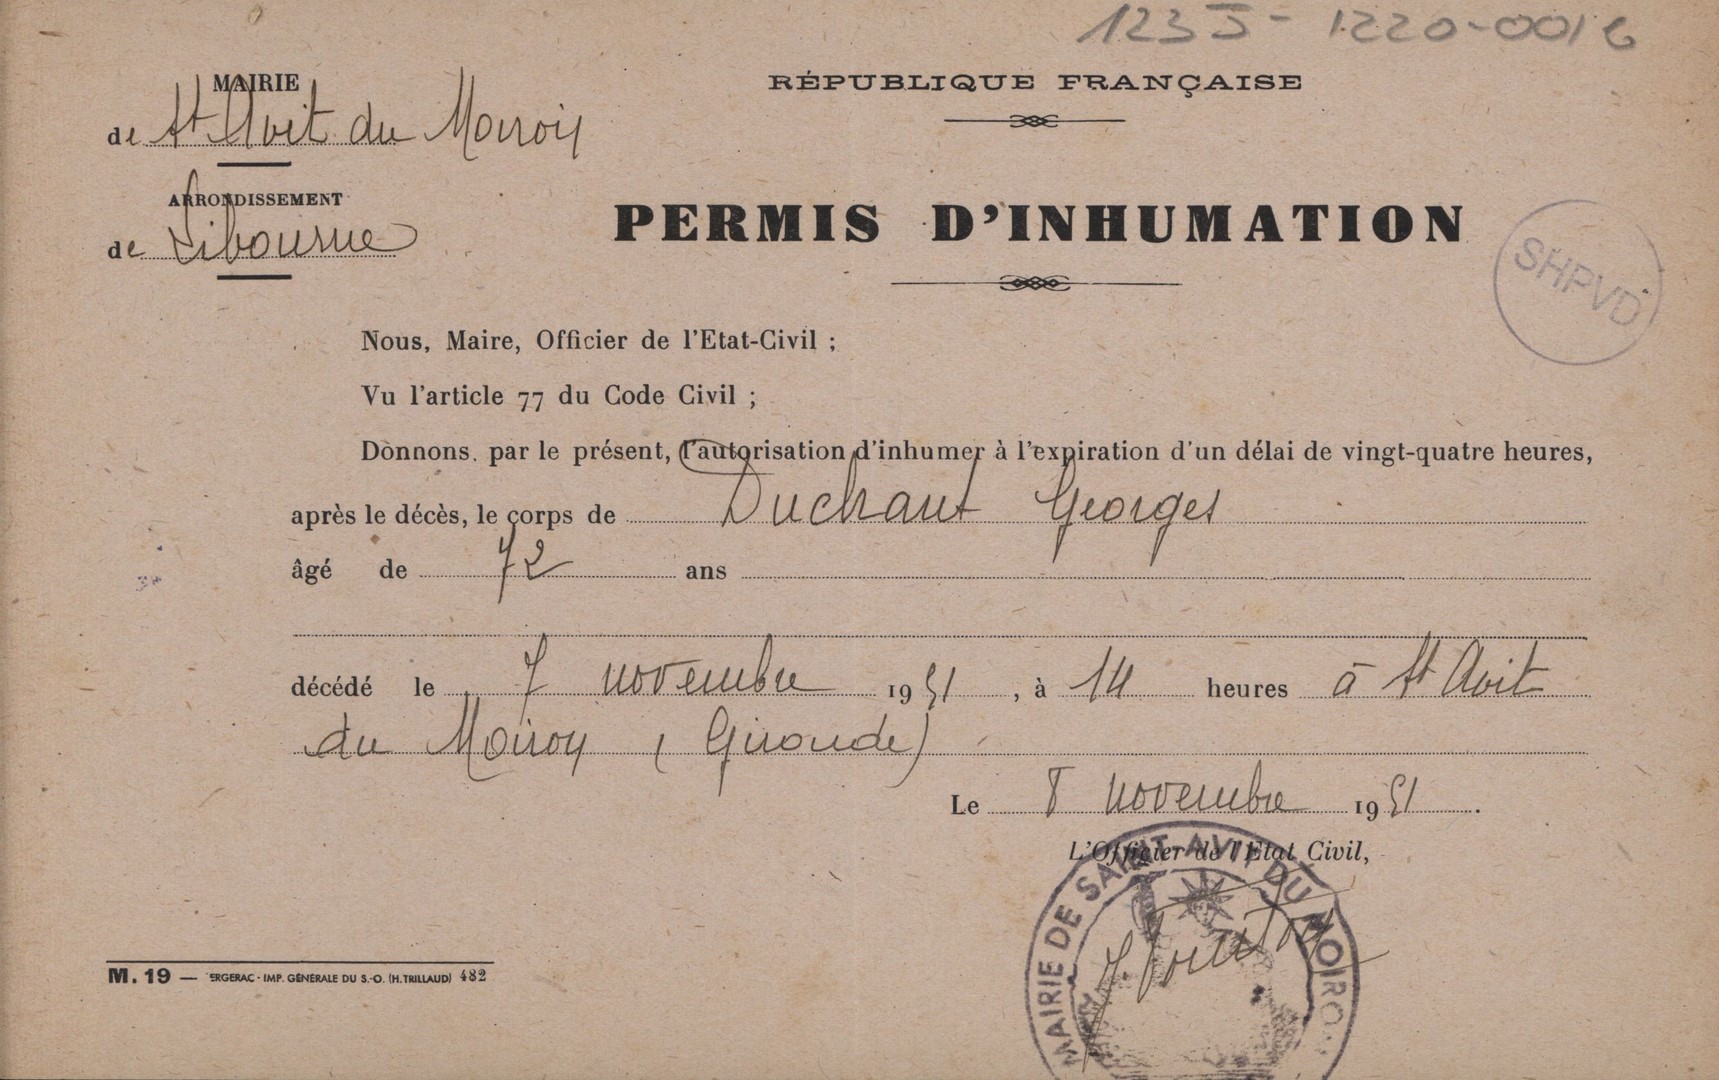 123 J - 1220-0016
MAIRIE
de St Avit du Moiron
RÉPUBLIQUE FRANÇAISE
ARRONDISSEMENT
de Libourne
PERMIS D'INHUMATION
SHPVD
Nous, Maire, Officier de l'Etat-Civil ;
Vu l'article 77 du Code Civil ;
Donnons, par le présent, l'autorisation d'inhumer à l'expiration d'un délai de vingt-quatre heures,
après le décès, le corps de Duchaut Georges
âgé de 72 ans
décédé le 7 novembre 1951, à 14 heures à St Avit
du Moiron (Gironde)
Le 8 novembre 1951.
L'Officier de l'Etat Civil,
MAIRIE DE SAINT-AVIT DU MOIRON
M. 19 — ERGERAC - IMP. GÉNÉRALE DU S.-O. (H. TRILLAUD) 482